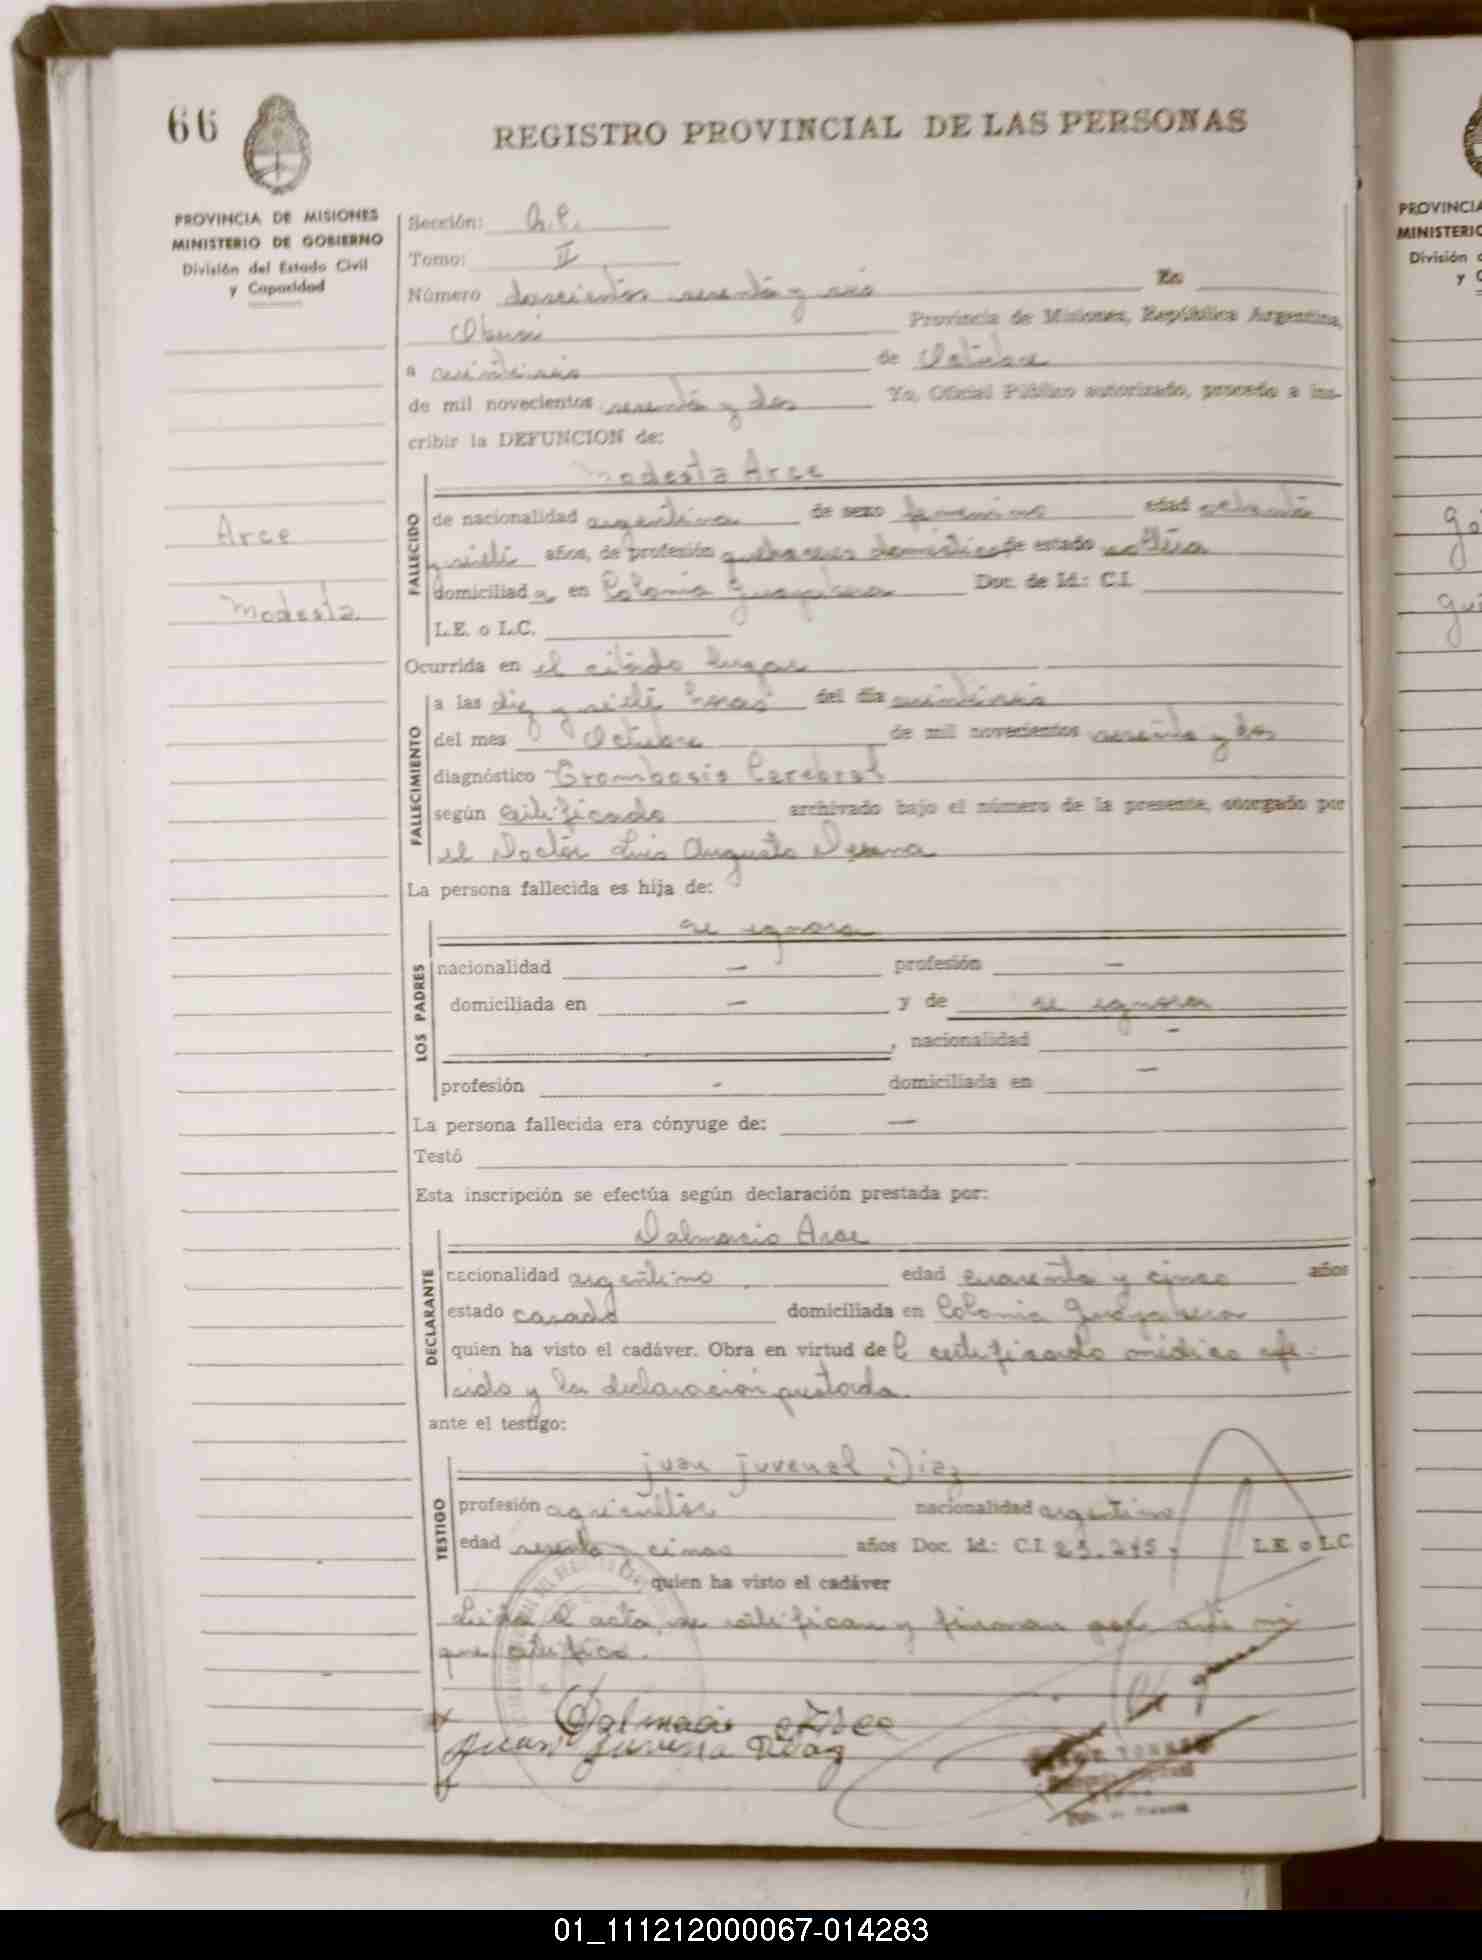 66
REGISTRO PROVINCIAL DE LAS PERSONAS
PROVINCIA DE MISIONES
MINISTERIO DE GOBIERNO
División del Estado Civil
y Capacidad
Sección:
Tomo: II
Número doscientos sesenta y seis En
Provincia de Misiones, República Argentina,
a veintiseis de Octubre
de mil novecientos sesenta y dos Yo, Oficial Público autorizado, procedo a ins-
cribir la DEFUNCION de:
Modesta Arce
Arce
Modesta
FALLECIDO
de nacionalidad argentina de sexo femenino edad ochenta
y siete años, de profesión quehaceres domésticos de estado soltera
domiciliada en Colonia Guayabera Doc. de Id.: C.I.
L.E. o L.C.
Ocurrida en el citado lugar
FALLECIMIENTO
a las diez y siete horas del día veintiseis
del mes Octubre de mil novecientos sesenta y dos
diagnóstico Trombosis Cerebral
según certificado archivado bajo el número de la presente, otorgado por
el Doctor Luis Augusto
La persona fallecida es hija de:
LOS PADRES
se ignora
nacionalidad — profesión —
domiciliada en — y de se ignora
, nacionalidad —
profesión - domiciliada en —
La persona fallecida era cónyuge de: —
Testó
Esta inscripción se efectúa según declaración prestada por:
DECLARANTE
Dalmacio Arce
nacionalidad argentino edad cuarenta y cinco años
estado casado domiciliada en Colonia Guayabera
quien ha visto el cadáver. Obra en virtud del certificado médico refe-
rido y la declaración prestada.
ante el testigo:
TESTIGO
Juan Juvenal Diaz
profesión agricultor nacionalidad argentino
edad sesenta y cinco años Doc. Id.: C.I. L.E. o L.C.
quien ha visto el cadáver
Leída el acta, se ratifican y firman por ante mi
que certifico.
Dalmacio Arce
Juan Juvena Diaz
PROVINCIA
MINISTERIO
División d
y C
01_111212000067-014283